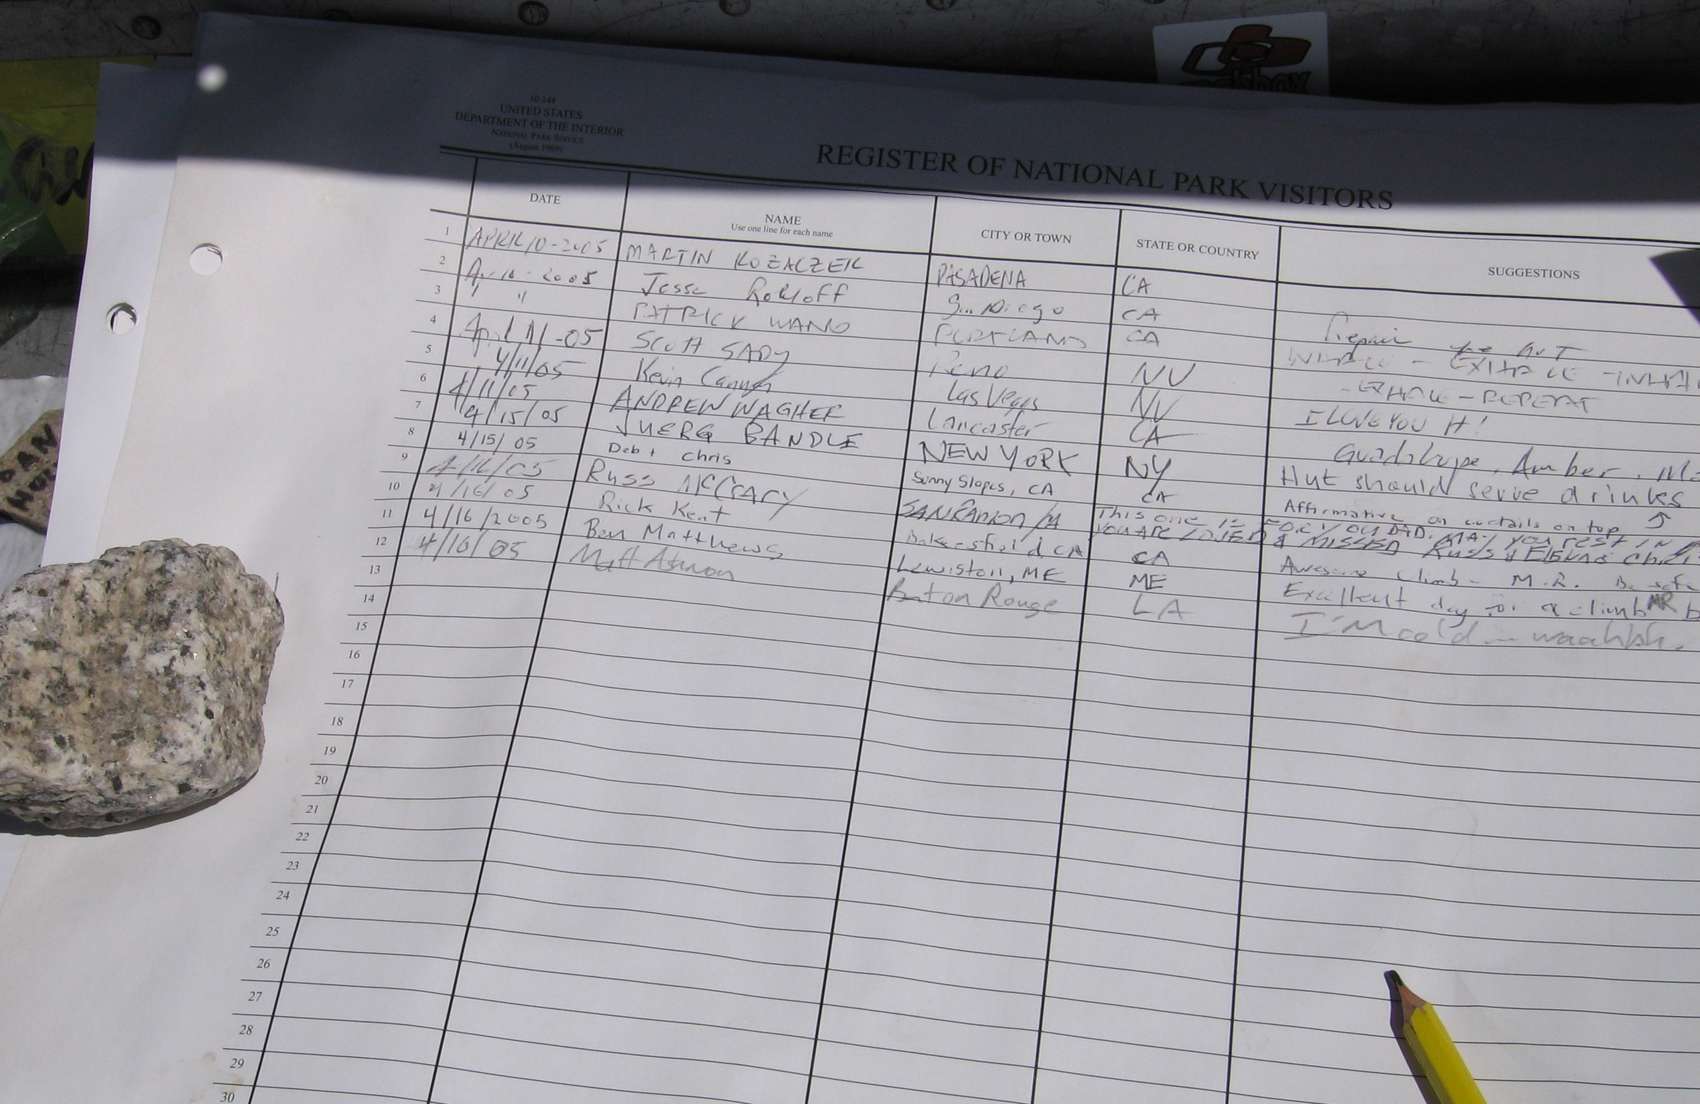 10-144
UNITED STATES
DEPARTMENT OF THE INTERIOR
NATIONAL PARK SERVICE
(August 1969)
REGISTER OF NATIONAL PARK VISITORS
DATE NAME CITY OR TOWN STATE OR COUNTRY SUGGESTIONS
Use one line for each name
1 APRIL 10-2005 MARTIN KOZACZEK PASADENA CA
2 2005 Jesse San Diego CA
3 " " PATRICK WANG PORTLAND CA Repair the hut
4 April 11-05 SCOTT SADY Reno NV INHALE - EXHALE - INHALE
5 4/11/05 Kevin Las Vegas NV - EXHALE - REPEAT
6 4/11/05 ANDREW WAGHER Lancaster CA I LOVE YOU H!
7 4/15/05 JUERG BANDLE NEW YORK NY Guadalupe, Amber,
8 4/15/05 Deb + Chris Sunny Slopes, CA CA Hut should serve drinks
9 4/16/05 RUSS McCRARY SAN RAMON CA This one is FOR YOU DAD. MAY YOU REST IN
YOU ARE LOVED & MISSED RUSS &
10 4/16/05 Rick Kent Bakersfield CA CA Affirmative on cocktails on top
11 4/16/2005 Ben Matthews Lewiston, ME ME Awesome climb - M.R.
12 4/16/05 Matt Baton Rouge LA Excellent day for a climb
I'm cold
13
14
15
16
17
18
19
20
21
22
23
24
25
26
27
28
29
30